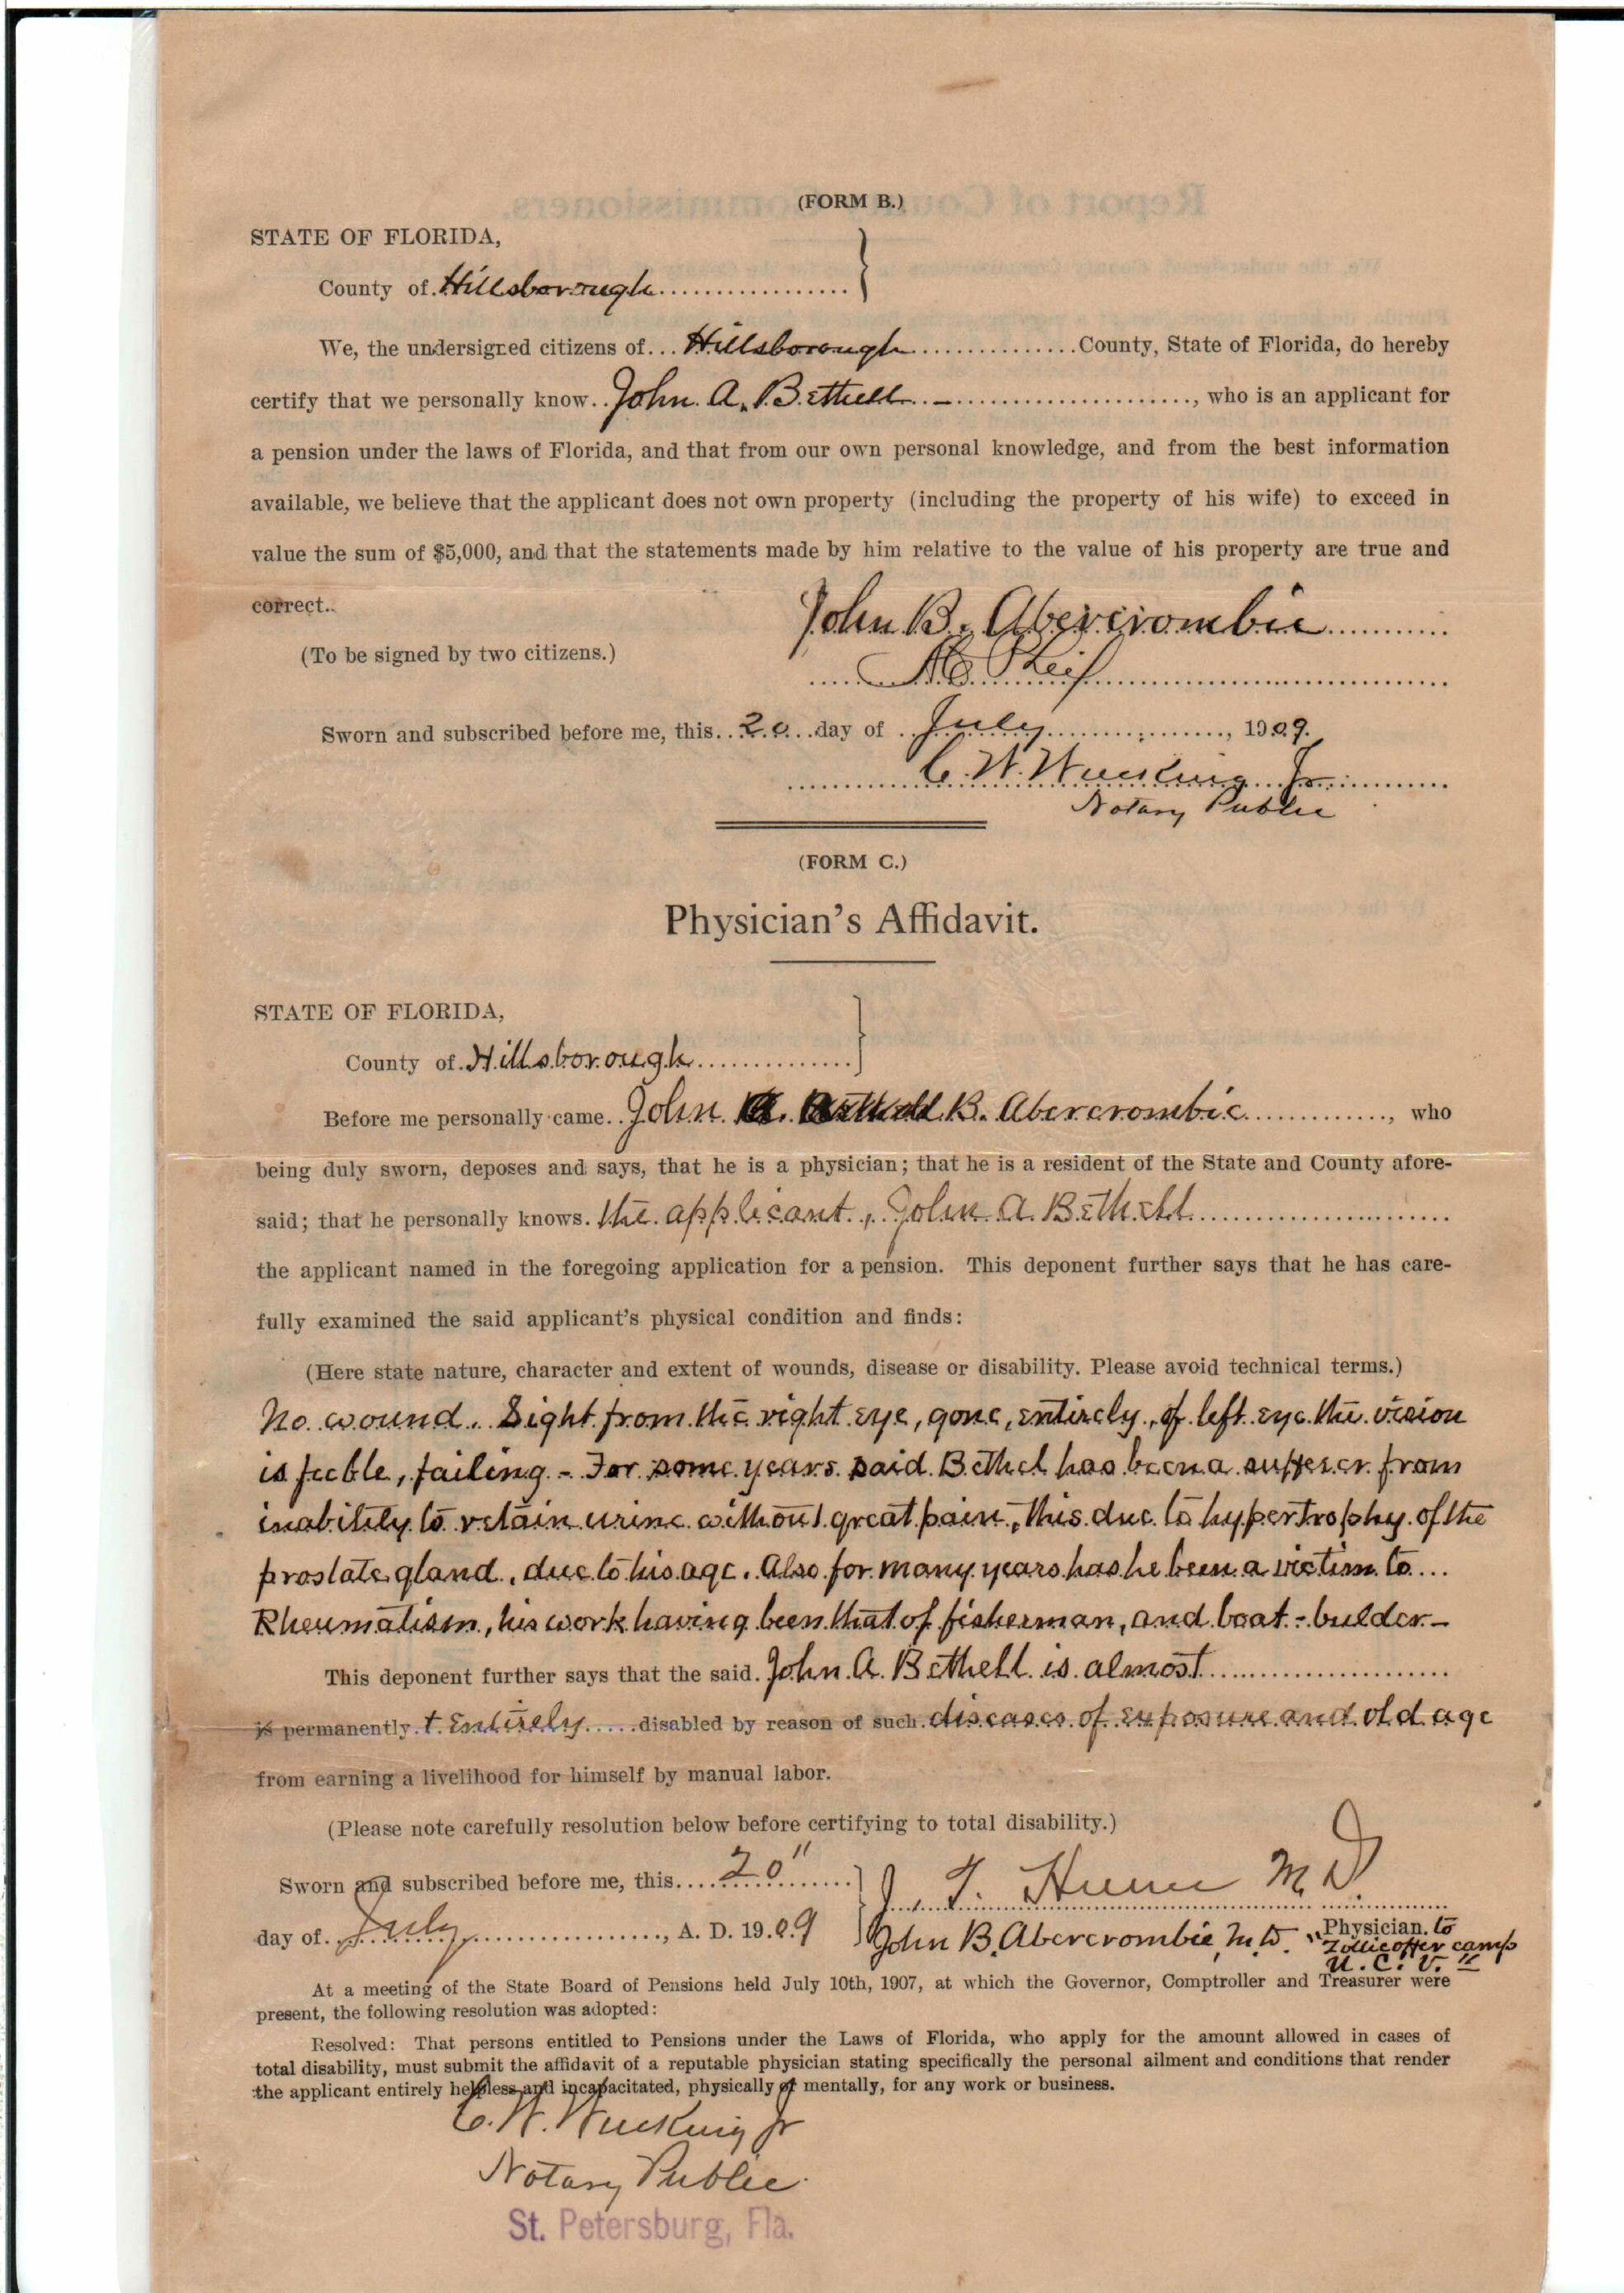 (FORM B.)
STATE OF FLORIDA,
County of Hillsborough
We, the undersigned citizens of Hillsborough County, State of Florida, do hereby
certify that we personally know John A. Bethell –, who is an applicant for
a pension under the laws of Florida, and that from our own personal knowledge, and from the best information
available, we believe that the applicant does not own property (including the property of his wife) to exceed in
value the sum of $5,000, and that the statements made by him relative to the value of his property are true and
correct.
John B. Abercrombie
(To be signed by two citizens.)
Sworn and subscribed before me, this 20 day of July, 1909.
C. W. Wiecking Jr
Notary Public
(FORM C.)
Physician's Affidavit.
STATE OF FLORIDA,
County of Hillsborough
Before me personally came John B. Abercrombie, who
being duly sworn, deposes and says, that he is a physician; that he is a resident of the State and County afore-
said; that he personally knows the applicant, John A Bethell
the applicant named in the foregoing application for a pension. This deponent further says that he has care-
fully examined the said applicant's physical condition and finds:
(Here state nature, character and extent of wounds, disease or disability. Please avoid technical terms.)
No wound. Sight from the right eye, gone, entirely, of left eye the vision
is feeble, failing – For some years said Bethel has been a sufferer from
inability to retain urine without great pain, this due to hypertrophy of the
prostate gland, due to his age. Also for many years has he been a victim to
Rheumatism, his work having been that of fisherman, and boat-bulder –
This deponent further says that the said John A. Bethell is almost
is permanently & Entirely disabled by reason of such diseases of exposure and old age
from earning a livelihood for himself by manual labor.
(Please note carefully resolution below before certifying to total disability.)
Sworn and subscribed before me, this 20"
day of July, A. D. 1909
J. T. Hume M. D
John B. Abercrombie, M.D. "Physician to
Zollicoffer camp
U. C. V."
At a meeting of the State Board of Pensions held July 10th, 1907, at which the Governor, Comptroller and Treasurer were
present, the following resolution was adopted:
Resolved: That persons entitled to Pensions under the Laws of Florida, who apply for the amount allowed in cases of
total disability, must submit the affidavit of a reputable physician stating specifically the personal ailment and conditions that render
the applicant entirely helpless and incapacitated, physically or mentally, for any work or business.
C. W. Wiecking Jr
Notary Public
St. Petersburg, Fla.